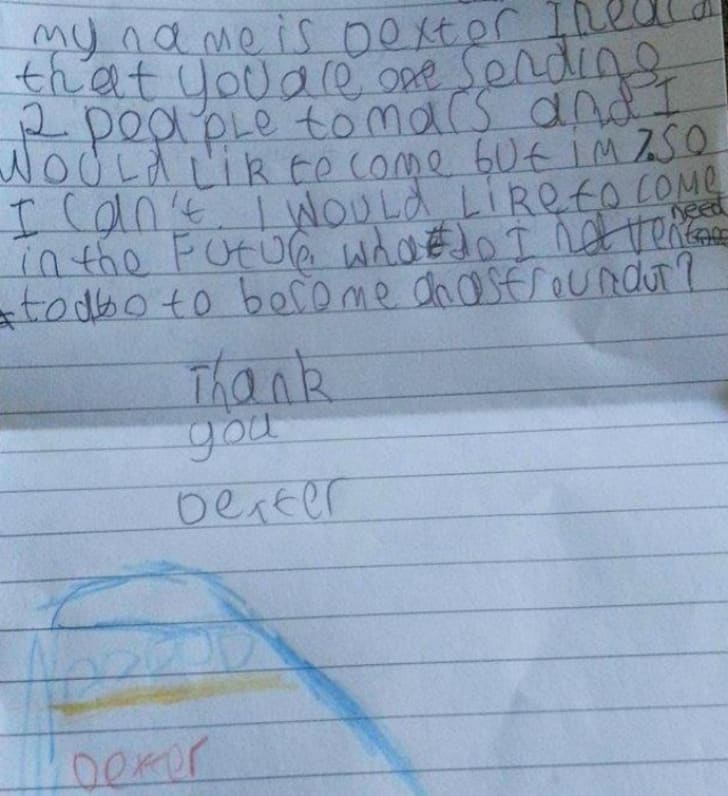 my name is Dexter I heard
that you are sending
2 peaple to mars and I
would Lik to come but im 7. SO
I can't. I would Like to come
in the Future. What do I need
to do to become an astrounaut?
Thank
you
Dexter
Dexter